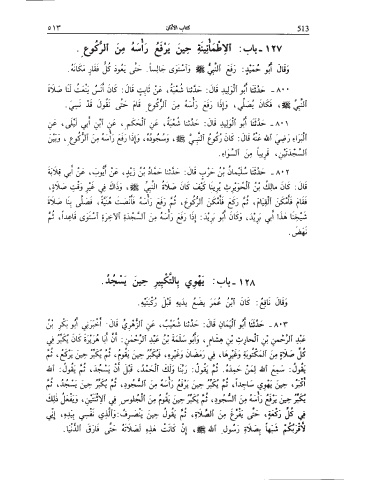 ٥١٣ كتاب الأذان 513
١٢٧ - باب: الاطْمَأْنِينَةِ حِينَ يَرْفَعُ رَأْسَهُ مِنَ الرُّكُوعِ.
وَقَالَ أَبُو حُمَيْدٍ: رَفَعَ النَّبِيُّ ﷺ وَاسْتَوَى جَالِساً، حَتَّى يَعُودَ كُلُّ فَقَارٍ مَكَانَهُ.
٨٠٠ - حَدَّثَنَا أَبُو الْوَلِيدِ قَالَ: حَدَّثَنَا شُعْبَةُ، عَنْ ثَابِتٍ قَالَ: كَانَ أَنَسٌ يَنْعَتُ لَنَا صَلَاةَ
النَّبِيِّ ﷺ، فَكَانَ يُصَلِّي، وَإِذَا رَفَعَ رَأْسَهُ مِنَ الرُّكُوعِ قَامَ حَتَّى نَقُولَ قَدْ نَسِيَ.
٨٠١ - حَدَّثَنَا أَبُو الْوَلِيدِ قَالَ: حَدَّثَنَا شُعْبَةُ، عَنِ الْحَكَمِ، عَنِ ابْنِ أَبِي لَيْلَى، عَنِ
الْبَرَاءِ رَضِيَ اللَّهُ عَنْهُ قَالَ: كَانَ رُكُوعُ النَّبِيِّ ﷺ، وَسُجُودُهُ، وَإِذَا رَفَعَ رَأْسَهُ مِنَ الرُّكُوعِ، وَبَيْنَ
السَّجْدَتَيْنِ، قَرِيباً مِنَ السَّوَاءِ.
٨٠٢ - حَدَّثَنَا سُلَيْمَانُ بْنُ حَرْبٍ قَالَ: حَدَّثَنَا حَمَّادُ بْنُ زَيْدٍ، عَنْ أَيُّوبَ، عَنْ أَبِي قِلَابَةَ
قَالَ: كَانَ مَالِكُ بْنُ الْحُوَيْرِثِ يُرِينَا كَيْفَ كَانَ صَلَاةُ النَّبِيِّ ﷺ، وَذَاكَ فِي غَيْرِ وَقْتِ صَلَاةٍ،
فَقَامَ فَأَمْكَنَ الْقِيَامَ، ثُمَّ رَكَعَ فَأَمْكَنَ الرُّكُوعَ، ثُمَّ رَفَعَ رَأْسَهُ فَأَنْصَتَ هُنَيَّةً، فَصَلَّى بِنَا صَلَاةَ
شَيْخِنَا هَذَا أَبِي بُرَيْدٍ، وَكَانَ أَبُو بُرَيْدٍ: إِذَا رَفَعَ رَأْسَهُ مِنَ السَّجْدَةِ الْآخِرَةِ اسْتَوَى قَاعِداً، ثُمَّ
نَهَضَ.
١٢٨ - باب: يَهْوِي بِالتَّكْبِيرِ حِينَ يَسْجُدُ.
وَقَالَ نَافِعٌ: كَانَ ابْنُ عُمَرَ يَضَعُ يَدَيْهِ قَبْلَ رُكْبَتَيْهِ.
٨٠٣ - حَدَّثَنَا أَبُو الْيَمَانِ قَالَ: حَدَّثَنَا شُعَيْبٌ، عَنِ الزُّهْرِيِّ قَالَ: أَخْبَرَنِي أَبُو بَكْرِ بْنُ
عَبْدِ الرَّحْمَنِ بْنِ الْحَارِثِ بْنِ هِشَامٍ، وَأَبُو سَلَمَةَ بْنُ عَبْدِ الرَّحْمَنِ: أَنَّ أَبَا هُرَيْرَةَ كَانَ يُكَبِّرُ فِي
كُلِّ صَلَاةٍ مِنَ الْمَكْتُوبَةِ وَغَيْرِهَا، فِي رَمَضَانَ وَغَيْرِهِ، فَيُكَبِّرُ حِينَ يَقُومُ، ثُمَّ يُكَبِّرُ حِينَ يَرْكَعُ، ثُمَّ
يَقُولُ: سَمِعَ اللَّهُ لِمَنْ حَمِدَهُ، ثُمَّ يَقُولُ: رَبَّنَا وَلَكَ الْحَمْدُ، قَبْلَ أَنْ يَسْجُدَ، ثُمَّ يَقُولُ: اللَّهُ
أَكْبَرُ، حِينَ يَهْوِي سَاجِداً، ثُمَّ يُكَبِّرُ حِينَ يَرْفَعُ رَأْسَهُ مِنَ السُّجُودِ، ثُمَّ يُكَبِّرُ حِينَ يَسْجُدُ، ثُمَّ
يُكَبِّرُ حِينَ يَرْفَعُ رَأْسَهُ مِنَ السُّجُودِ، ثُمَّ يُكَبِّرُ حِينَ يَقُومُ مِنَ الْجُلُوسِ فِي الِاثْنَتَيْنِ، وَيَفْعَلُ ذَلِكَ
فِي كُلِّ رَكْعَةٍ، حَتَّى يَفْرُغَ مِنَ الصَّلَاةِ، ثُمَّ يَقُولُ حِينَ يَنْصَرِفُ: وَالَّذِي نَفْسِي بِيَدِهِ، إِنِّي
لَأَقْرَبُكُمْ شَبَهاً بِصَلَاةِ رَسُولِ اللَّهِ ﷺ، إِنْ كَانَتْ هَذِهِ لَصَلَاتَهُ حَتَّى فَارَقَ الدُّنْيَا.